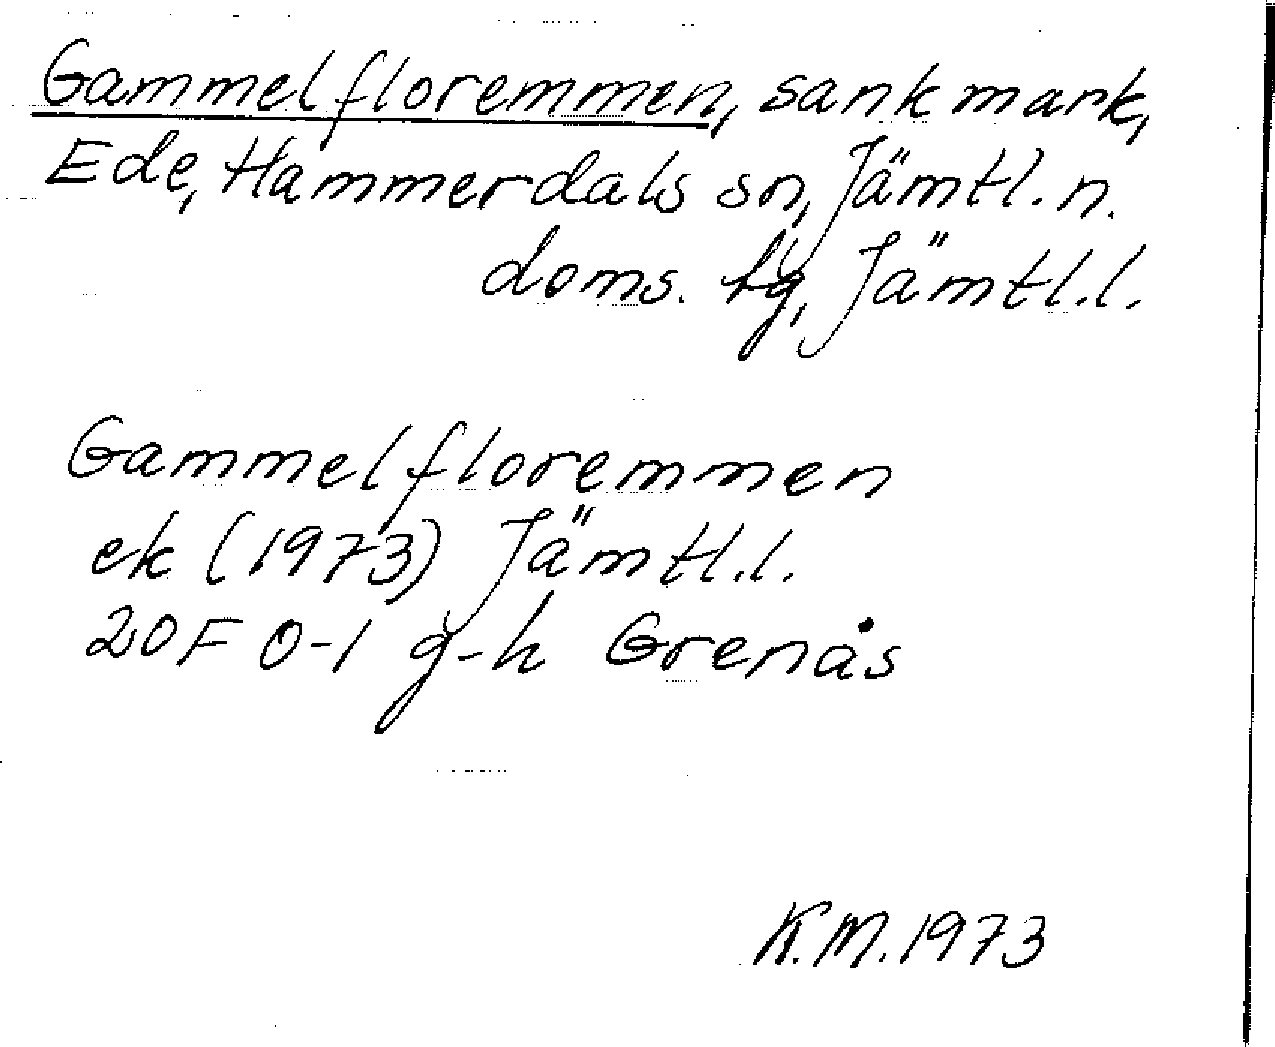 Gammelfloremmen, sank mark,
Ede, Hammerdals sn, Jämtl. n.
doms. tg, Jämtl. l.
Gammelfloremmen
ek (1973) Jämtl. l.
20F 0-1 g-h Grenås
K.M. 1973